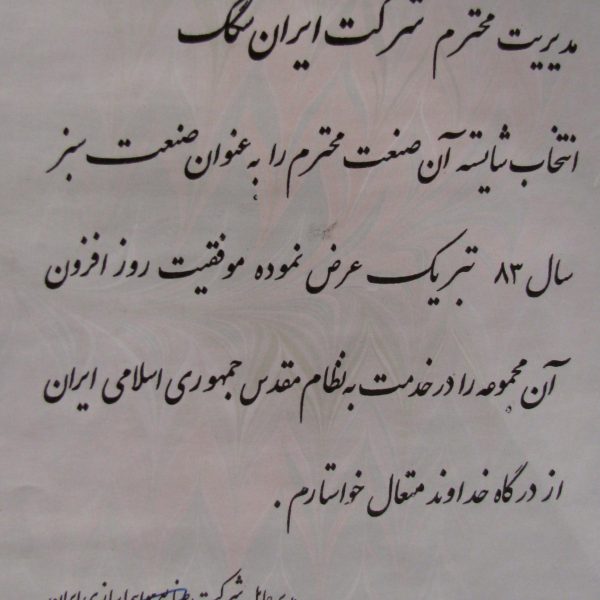 مدیریت محترم شرکت ایران سنگ
انتخاب شایسته آن صنعت محترم را به عنوان صنعت سبز
سال ۸۳ تبریک عرض نموده موفقیت روز افزون
آن مجموعه را در خدمت به نظام مقدس جمهوری اسلامی ایران
از درگاه خداوند متعال خواستارم .